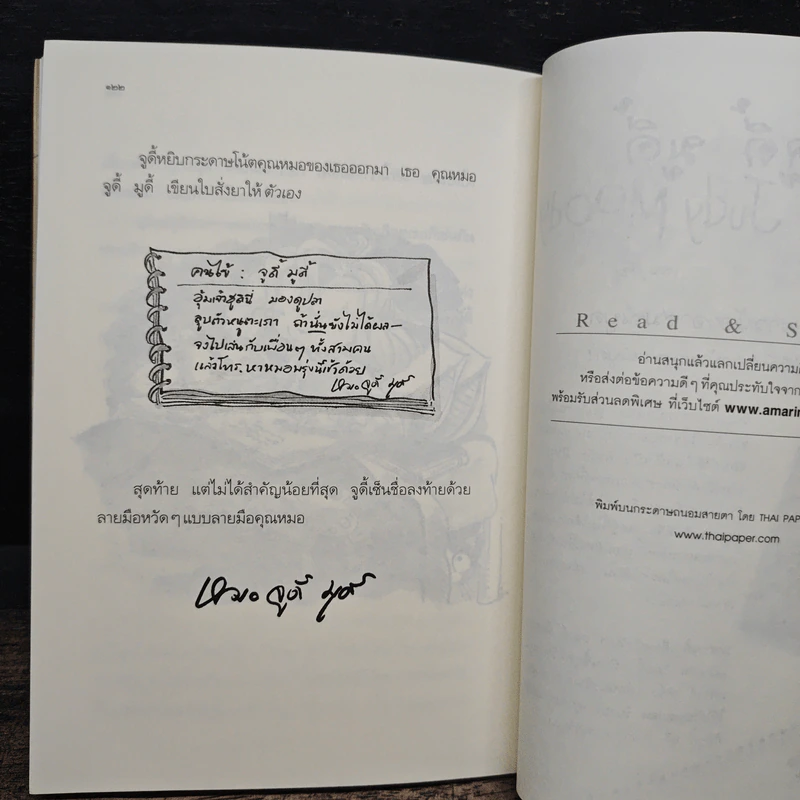 ๑๒๒
จูดี้หยิบกระดาษโน้ตคุณหมอของเธอออกมา เธอ คุณหมอ
จูดี้ มูดี้ เขียนใบสั่งยาให้ ตัวเอง
คนไข้ : จูดี้ มูดี้
อุ้มเจ้าฮูลนี่ มองดูปลา
ลูบตัวหนูตะเภา ถ้านั่นยังไม่ได้ผล—
จงไปเล่นกับเพื่อนๆ ทั้งสามคน
แล้วโทร.หาหมอพรุ่งนี้เช้าด้วย
หมอ จูดี้ มูดี้
สุดท้าย แต่ไม่ได้สำคัญน้อยที่สุด จูดี้เซ็นชื่อลงท้ายด้วย
ลายมือหวัดๆ แบบลายมือคุณหมอ
หมอ จูดี้ มูดี้
Read & S
อ่านสนุกแล้วแลกเปลี่ยนความ
หรือส่งต่อข้อความดีๆ ที่คุณประทับใจจาก
พร้อมรับส่วนลดพิเศษ ที่เว็บไซต์ www.amarin
พิมพ์บนกระดาษถนอมสายตา โดย THAI PAP
www.thaipaper.com